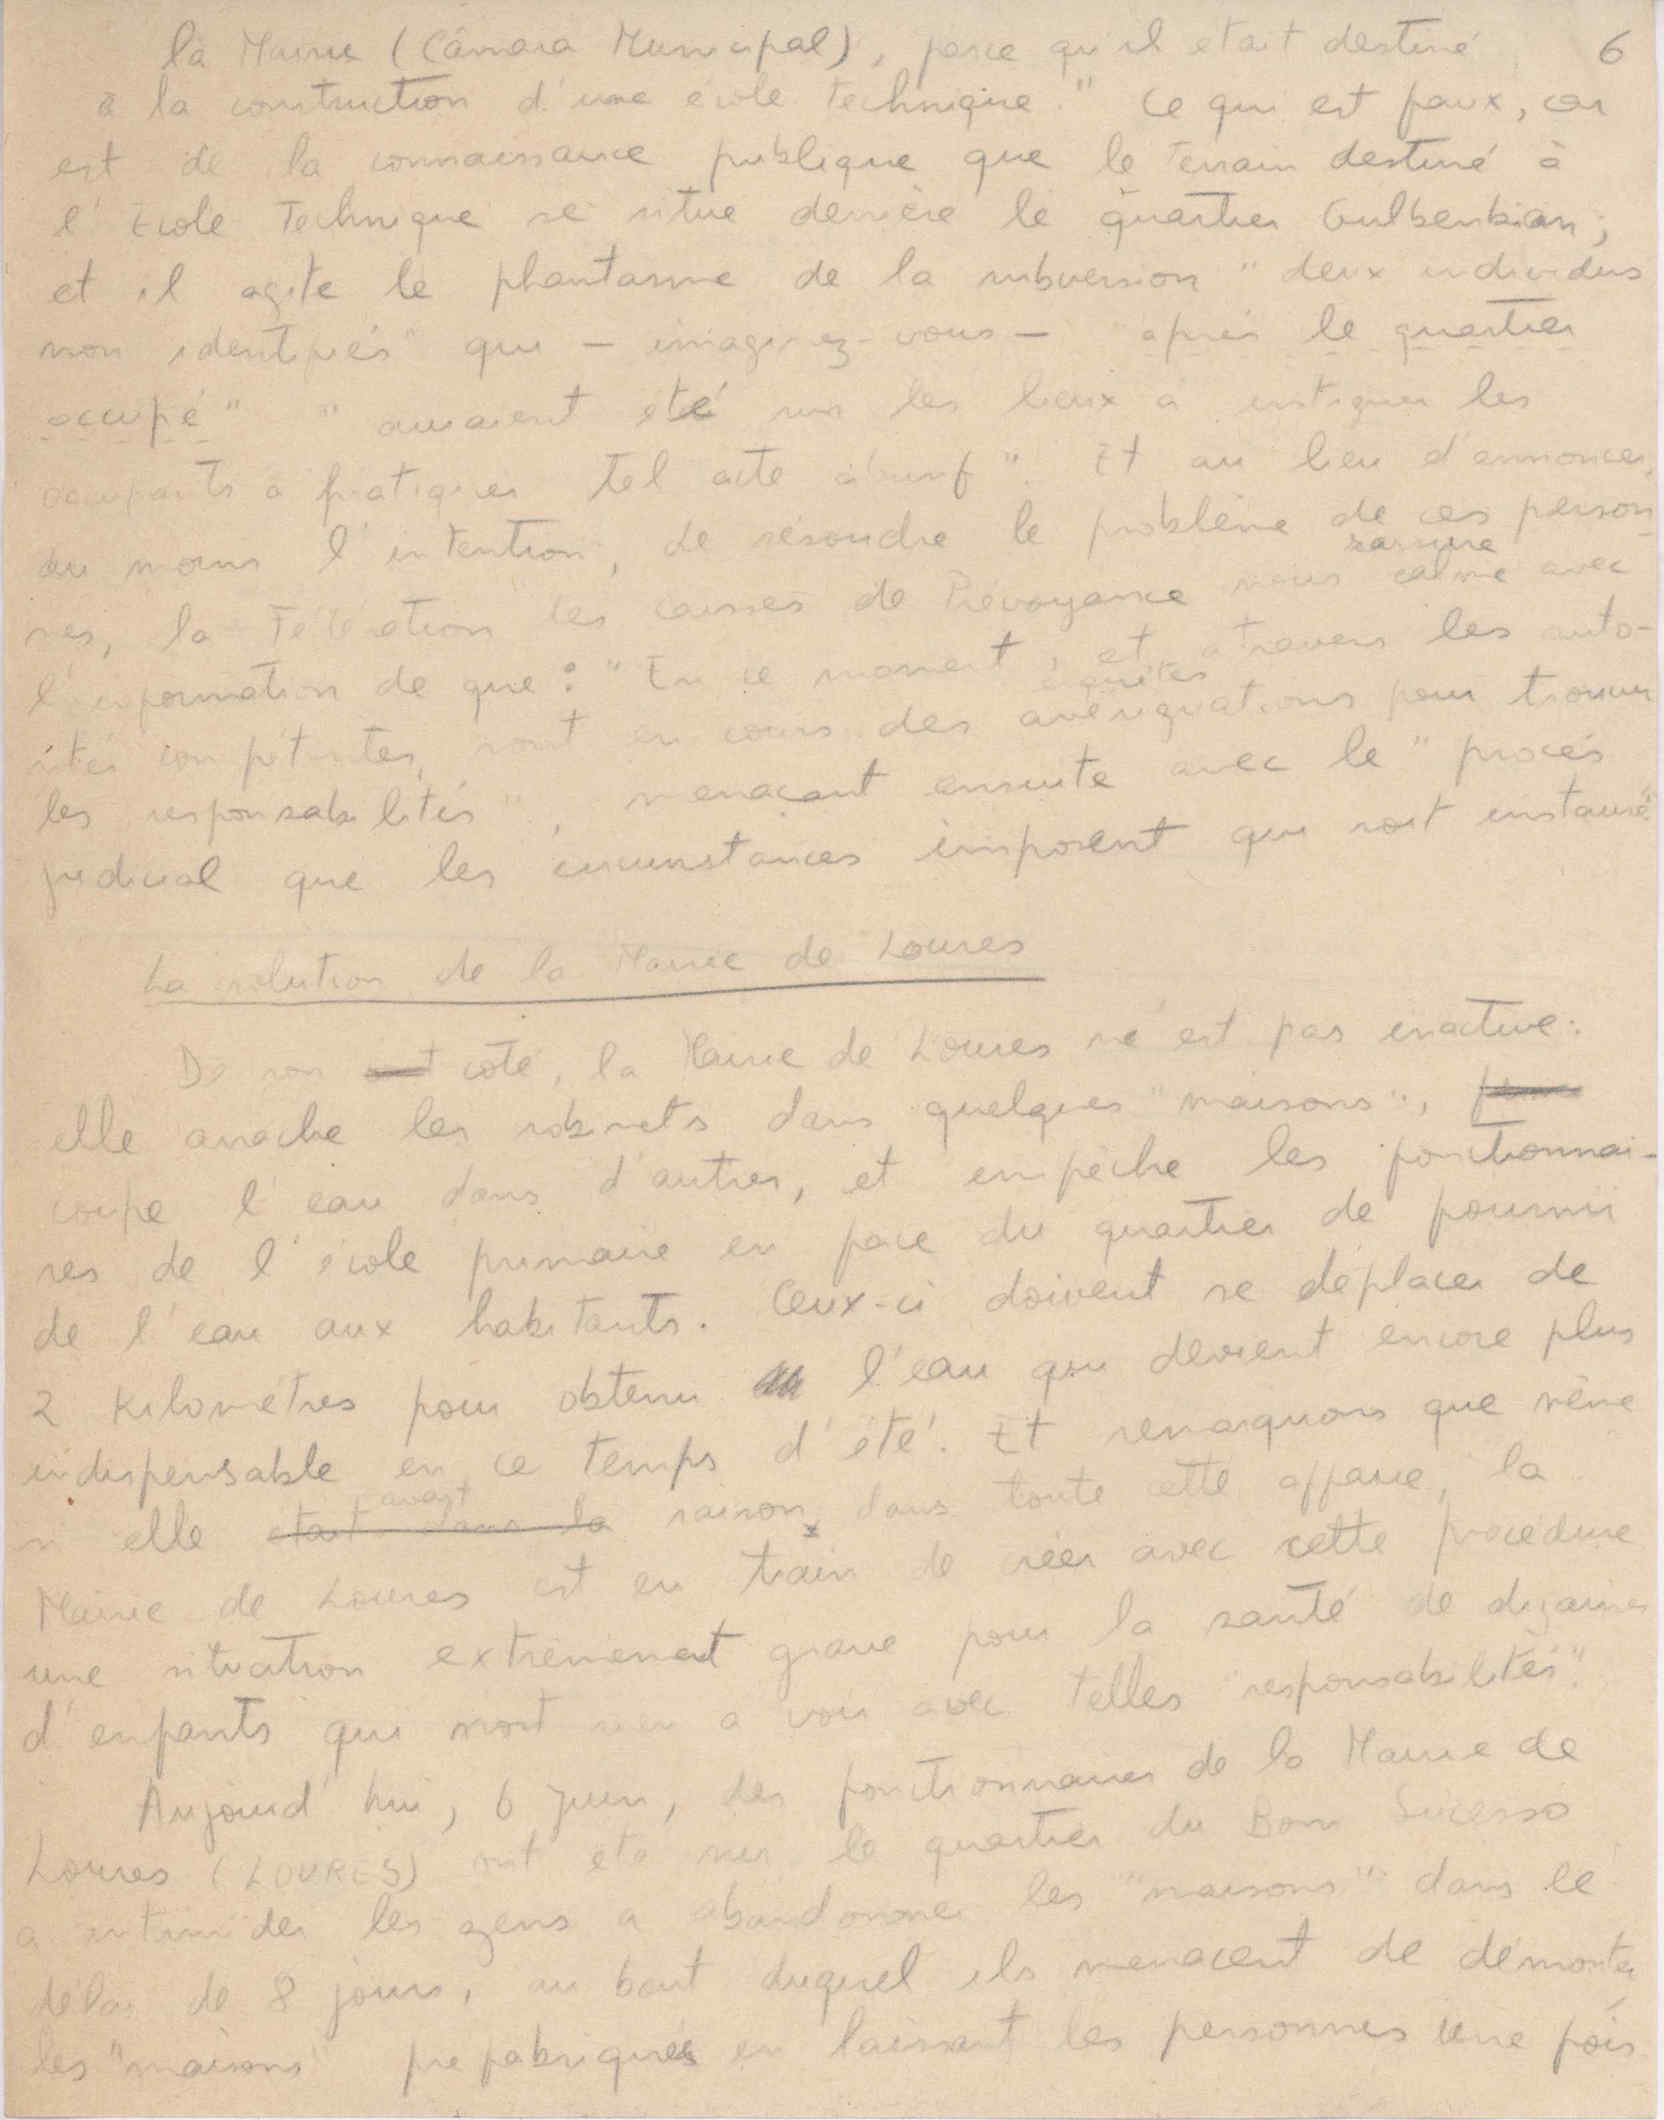 6
la Mairie (Câmara Municipal), parce qu'il etait destiné
à la construction d'une école technique." Ce qui est faux, car
est de la connaissance publique que le terrain destiné à
l'Ecole Technique se situe derrière le quartier Gulbenkian;
et il agite le phantasme de la subversion "deux individus
non identifiés" qui — imaginez-vous — "après le quartier
occupé" "auraient été sur les lieux à instiguer les
occupants à pratiquer tel acte abusif". Et au lieu d'annoncer,
au moins l'intention, de résoudre le problème de ces person-
nes, la Fédération des Caisses de Prévoyance nous calme avec
rassure
l'information de que: "En ce moment, et à travers les auto-
enquêtes
rités compétentes, sont en cours des averiguations pour trouver
les responsabilités", menaçant ensuite avec le "procès
judicial que les circunstances imposent qui soit instauré"
La solution de la Mairie de Loures
De son côté, la Mairie de Loures ne est pas inactive:
elle arrache les robinets dans quelques "maisons",
coupe l'eau dans d'autres, et empêche les fonctionnai-
res de l'école primaire en face du quartier de fournir
de l'eau aux habitants. Ceux-ci doivent se déplacer de
2 kilomètres pour obtenir l'eau qui devient encore plus
indispensable en ce temps d'été. Et remarquons que même
avait
si elle était dans la raison, dans toute cette affaire, la
Mairie de Loures est en train de créer avec cette procédure
une situation extrêmement grave pour la santé de dizaines
d'enfants qui n'ont rien a voir avec telles "responsabilités".
Aujourd'hui, 6 Juin, des fonctionnaires de la Mairie de
Loures (LOURES) ont été sur le quartier du Bom Sucesso
a intimider les gens a abandonner les "maisons" dans le
délai de 8 jours, au bout duquel ils menacent de démonter
les "maisons" prefabriquées en laissant les personnes une fois